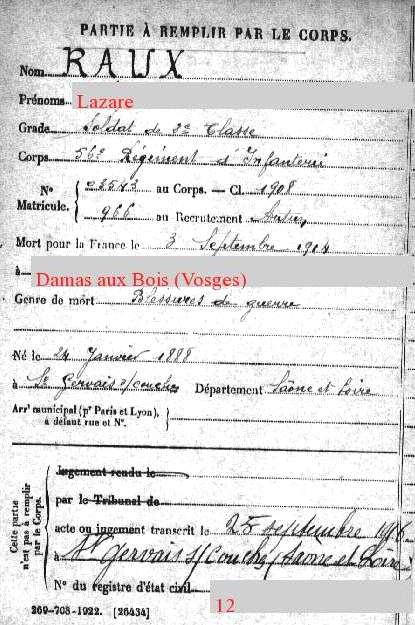 PARTIE À REMPLIR PAR LE CORPS.
Nom RAUX
Prénoms Lazare
Grade Soldat de 2e Classe
Corps 56e Régiment d'Infanterie
N° Matricule. { 03543 au Corps. — Cl. 1908
966 au Recrutement Autun
Mort pour la France le 3 Septembre 1914
à Damas aux Bois (Vosges)
Genre de mort Blessures de guerre
Né le 24 Janvier 1888
à St Gervais s/couches Département Saône et Loire
Arr' municipal (p' Paris et Lyon),
à défaut rue et N°.
Cette partie n'est pas à remplir par le Corps.
Jugement rendu le
par le Tribunal de
acte ou jugement transcrit le 25 septembre 1916
à St Gervais s/ Couches (Saone et Loire)
N° du registre d'état civil
12
269-708-1922. [26434]